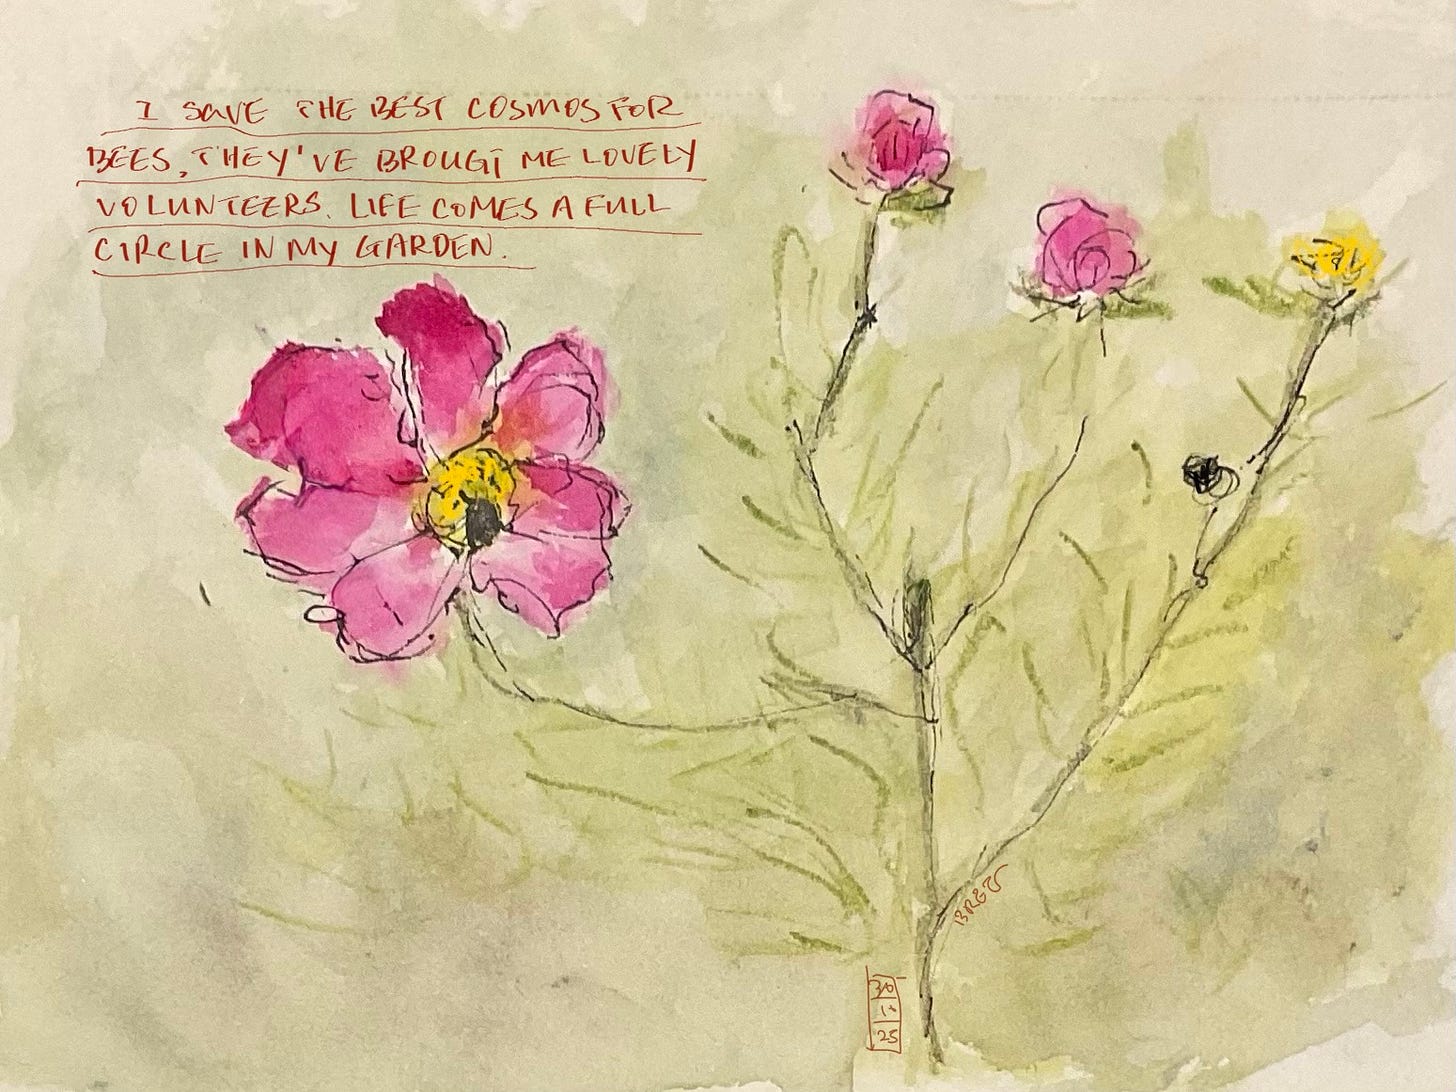 I SAVE THE BEST COSMOS FOR
BEES, THEY'VE BROUGT ME LOVELY
VOLUNTEERS. LIFE COMES A FULL
CIRCLE IN MY GARDEN.
30
10
25